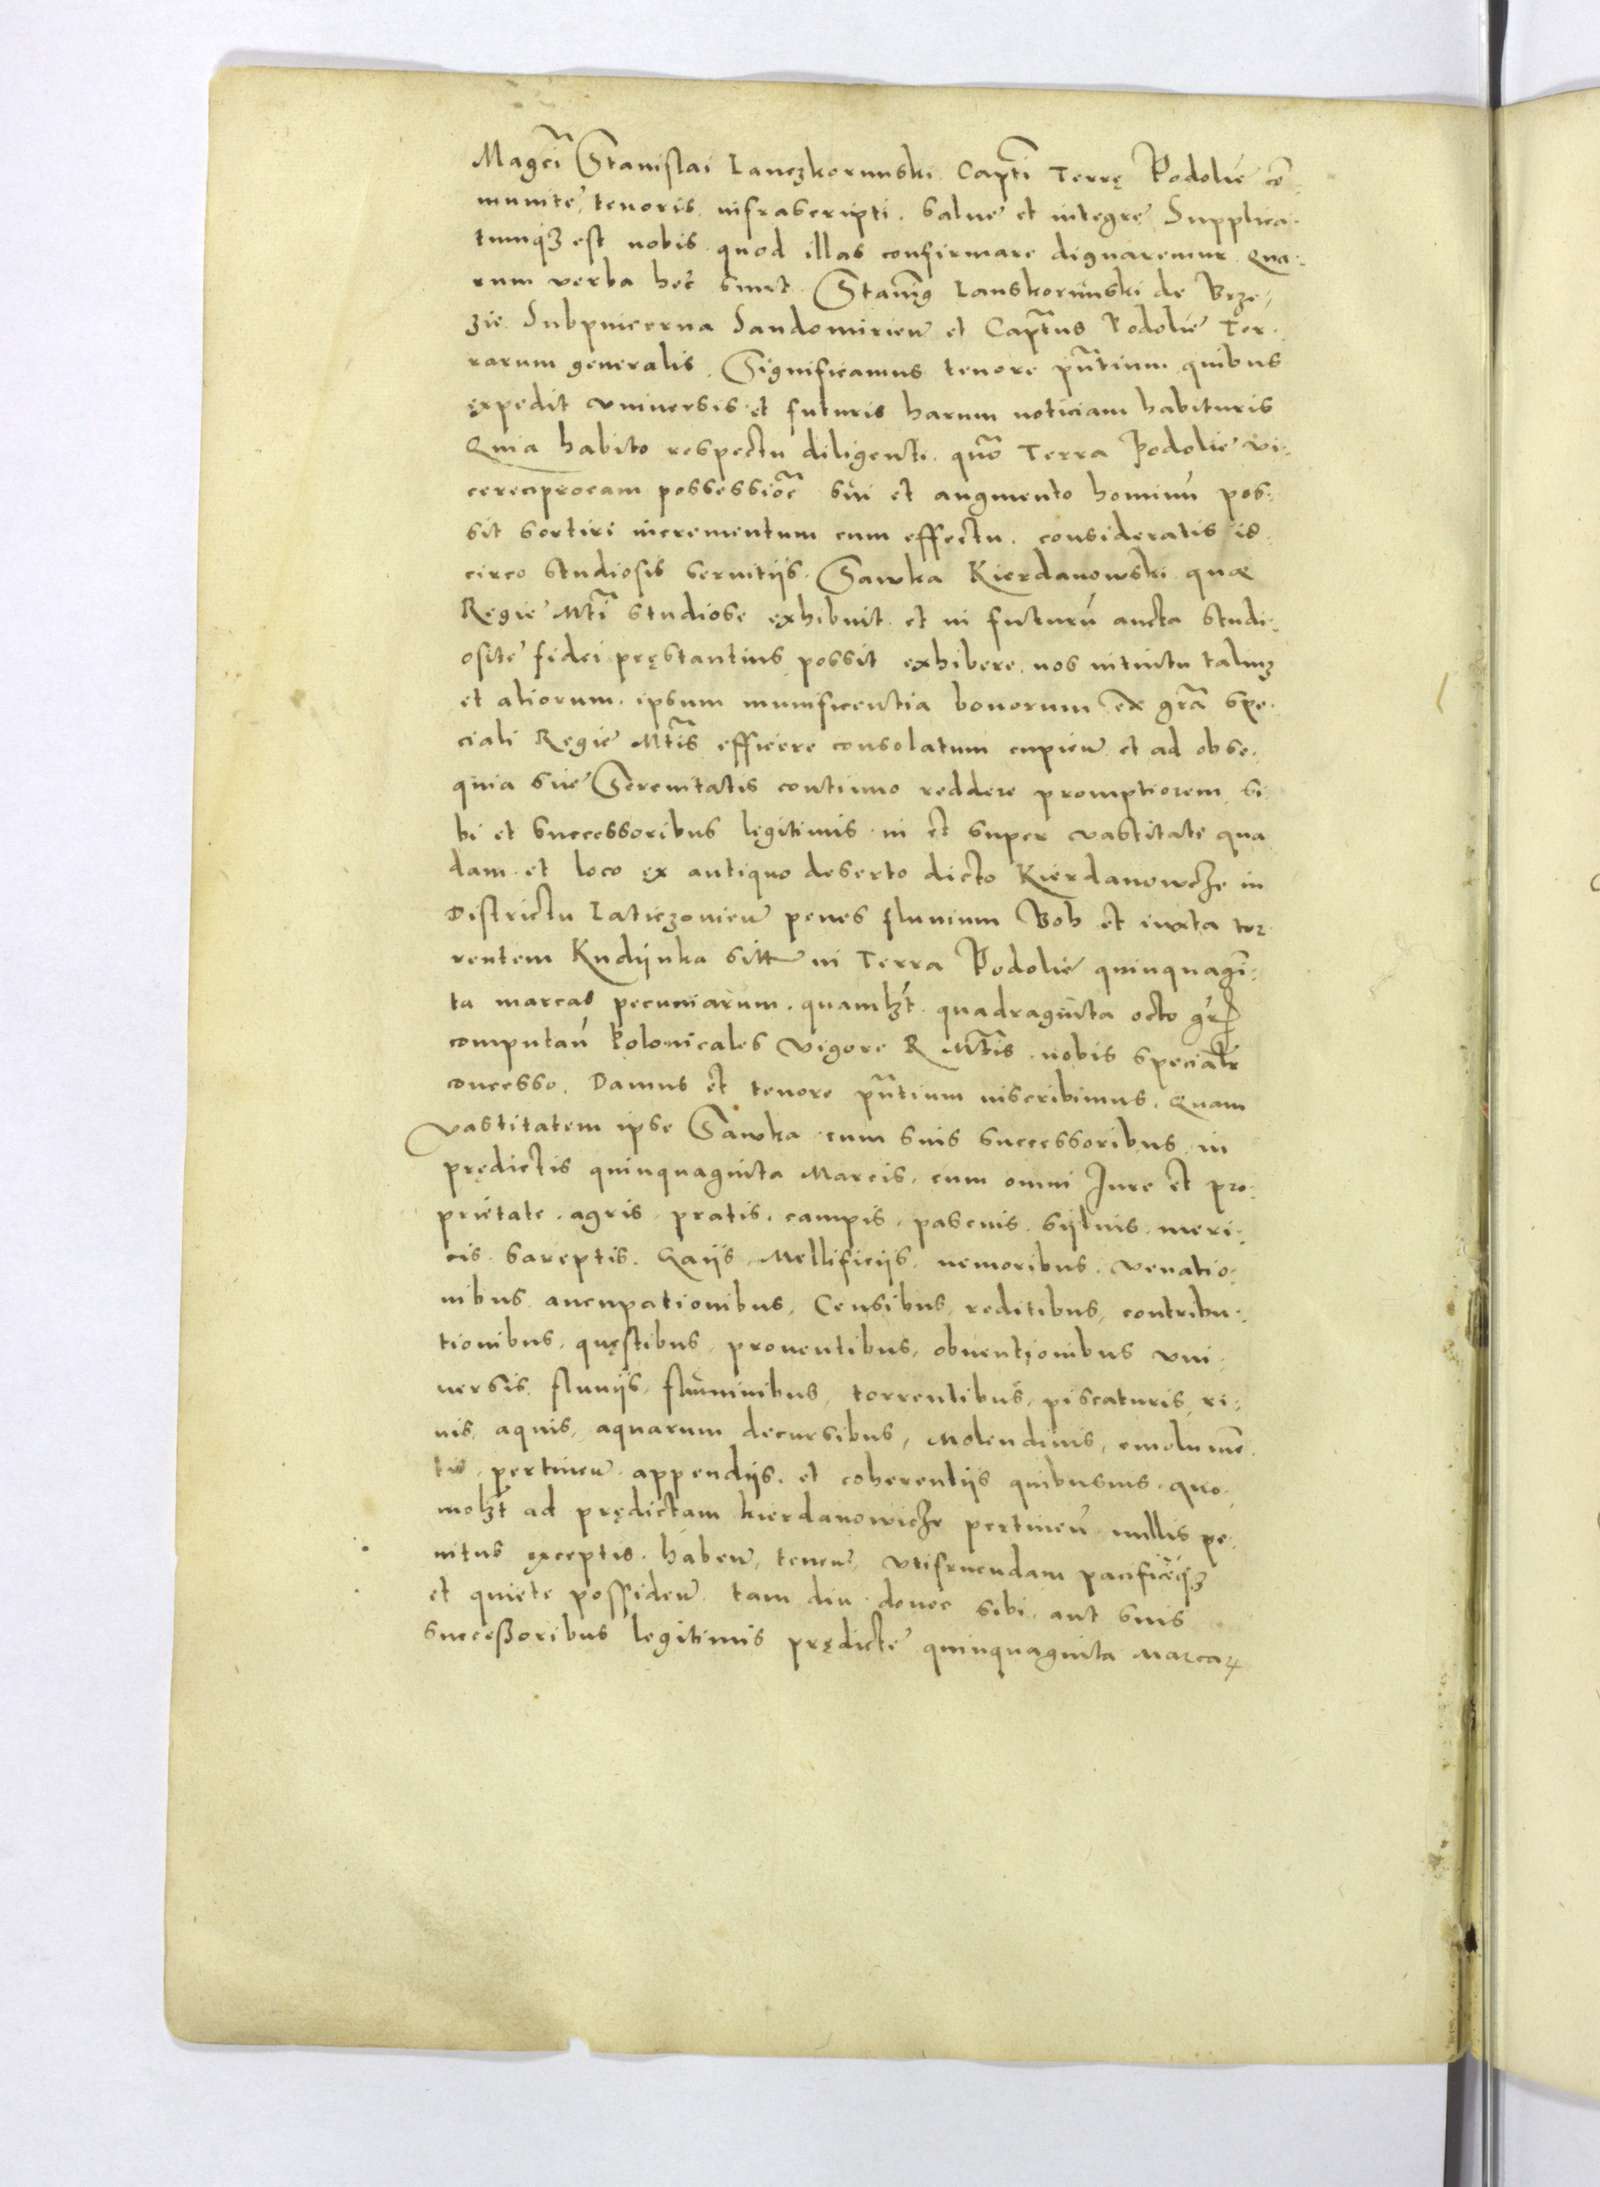 Magcī Stanislai Lanczkorunski Captī Terrę Podolie cō¬
munite, tenoris infrascripti. Salue et integre Supplica¬
tumq3 est nobis quod illas confirmare dignaremur Qua¬
rum verba hec sunt. Stanīs Lanskorunski de Brze¬
zie Subpincerna Sandomirien et Captus Podolie Ter¬
rarum generalis. Significamus tenore pntium quibus
expedit vniuersis et futuris harum noticiam habituris
Quia habito respectu diligenti. quō Terra Podolie vi¬
cereciprocam possessioē sui et augmento hominū pos¬
sit sortiri incrementum cum effectu. consideratis id
circo studiosis seruitijs. Sawka Kierdanowski quæ
Regie Mtī studiose exhibuit et in futurū aucta studi¬
osite fidei pręstantius possit exhibere nos intuitu talium
et aliorum. ipsum munificentia bonorum ex grā spe¬
ciali Regie Mtīs efficere consolatum cupien et ad obse¬
quia sue Serenitatis continuo reddere promptiorem si
bi et successoribus legitimis in et super vastitate qua
dam et loco ex antiquo deserto dicto Kierdanowcze in
Districtu Laticzouien penes fluuium Boh et iuxta tor
rentem Kudijnka sitt in Terra Podolie quinquagī¬
ta marcas pecuniarum. quamlzt quadraginta octo gr
computan Polonicales vigore R Mtīs nobis specialr
concesso. Damus et tenore pntium inscribimus. Quam
vastitatem ipse Sawka cum suis successoribus in
prędictis quinquaginta Marcis. cum omni Jure et pro¬
prietate. agris pratis. campis. pascuis. sijluis meri¬
cis. sareptis. Gaijs Mellificijs nemoribus. venatio¬
nibus aucupationibus, Censibus, reditibus, contribu¬
tionibus, quęstibus, prouentibus, obuentionibus vni¬
uersis. fluuijs, fluminibus, torrentibus, piscaturis, ri¬
uis, aquis, aquarum decursibus, Molendinis, emolumē
tis pertinen appendijs. et coherentijs quibusuis. quo¬
molzt ad prędictam Kierdanowicze pertinen nullis pe¬
nitus exceptis. haben, tenen, vtifruendam pacificeq3
et quiete possiden tam diu donec sibi aut suis
successoribus legitimis prędicte quinquaginta Marcar